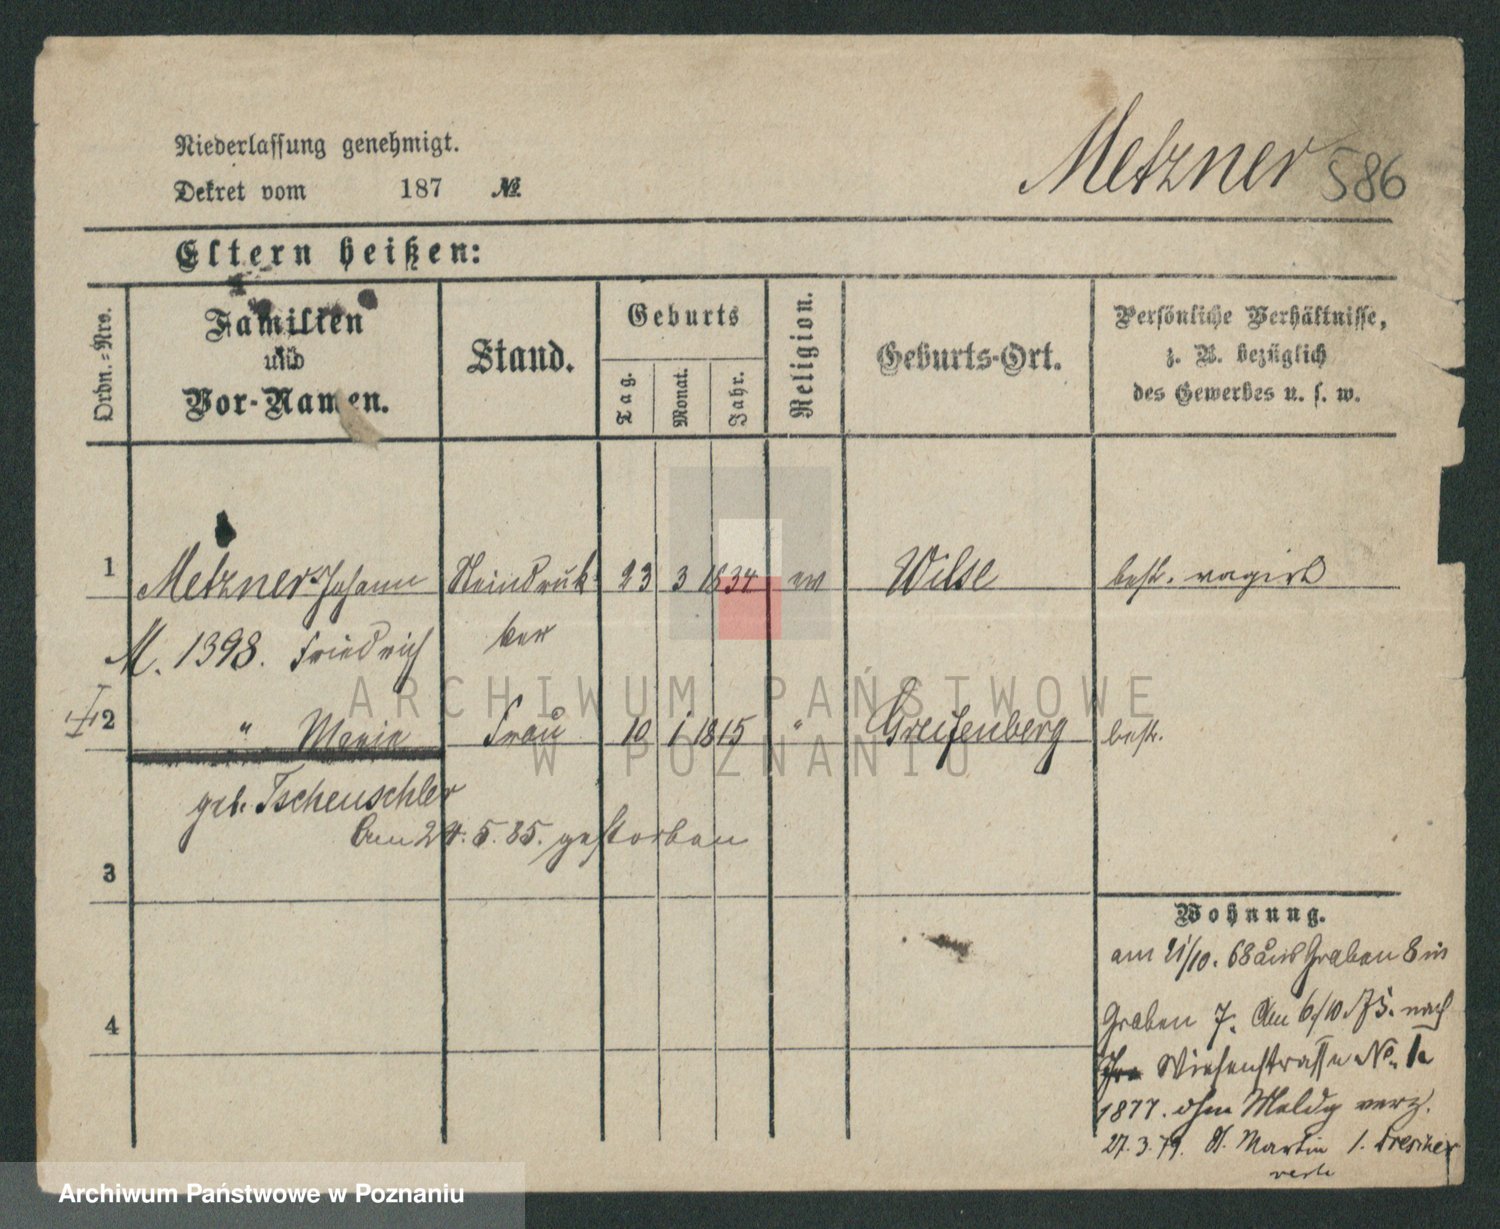 Niederlassung genehmigt.
Dekret vom 187 №
Metzner 586
Eltern heißen:
Ordn.-Nrs.
Familien
und
Vor-Namen.
Stand.
Geburts
Tag.
Monat.
Jahr.
Religion.
Geburts-Ort.
Persönliche Verhältnisse,
z. B. bezüglich
des Gewerbes u. s. w.
1 Metzner Johann Steindruk- 23 3 1834 ev Wilse best.
M. 1398. Friedrich ker
2 " Maria Frau 10 1 1815 " Greifenberg best.
geb. Tscheuschler
Am 24.5.85. gestorben
3
4
Wohnung.
am 21/10. 68 aus Graben 8 in
Graben 7. Am 6/10. 75. nach
Wiesenstrasse No. 1.
1877. ohne Meldg verz.
27.3.79. St. Martin 1.
ARCHIWUM PAŃSTWOWE
W POZNANIU
Archiwum Państwowe w Poznaniu